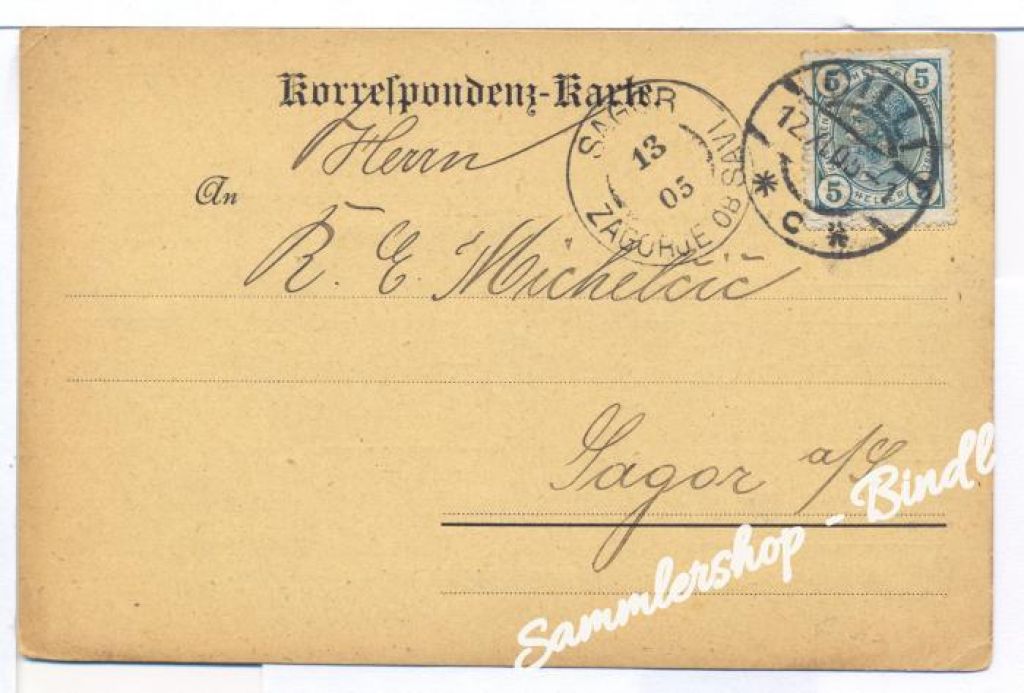 Korrespondenz-Karte.
Herrn
An
R. E. Michelčič
Sagor a/S
SAGOR
13
05
ZAGORJE OB SAVI
CILLI
12.
05-7
* C *
5 5
5 5
HELLER
Sammlershop - Bindl